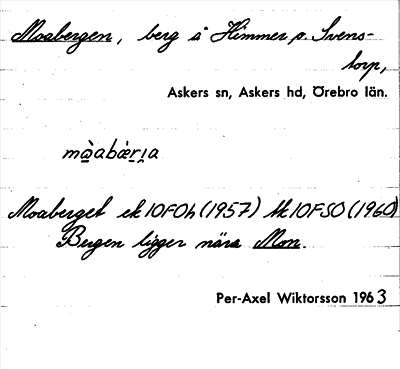 Moabergen, berg å Himmer o. Svens-
torp,
Askers sn, Askers hd, Örebro län.
Moaberget ek 10F0h (1957) tk 10FSO (1960)
Bergen ligger nära Mon.
Per-Axel Wiktorsson 1963